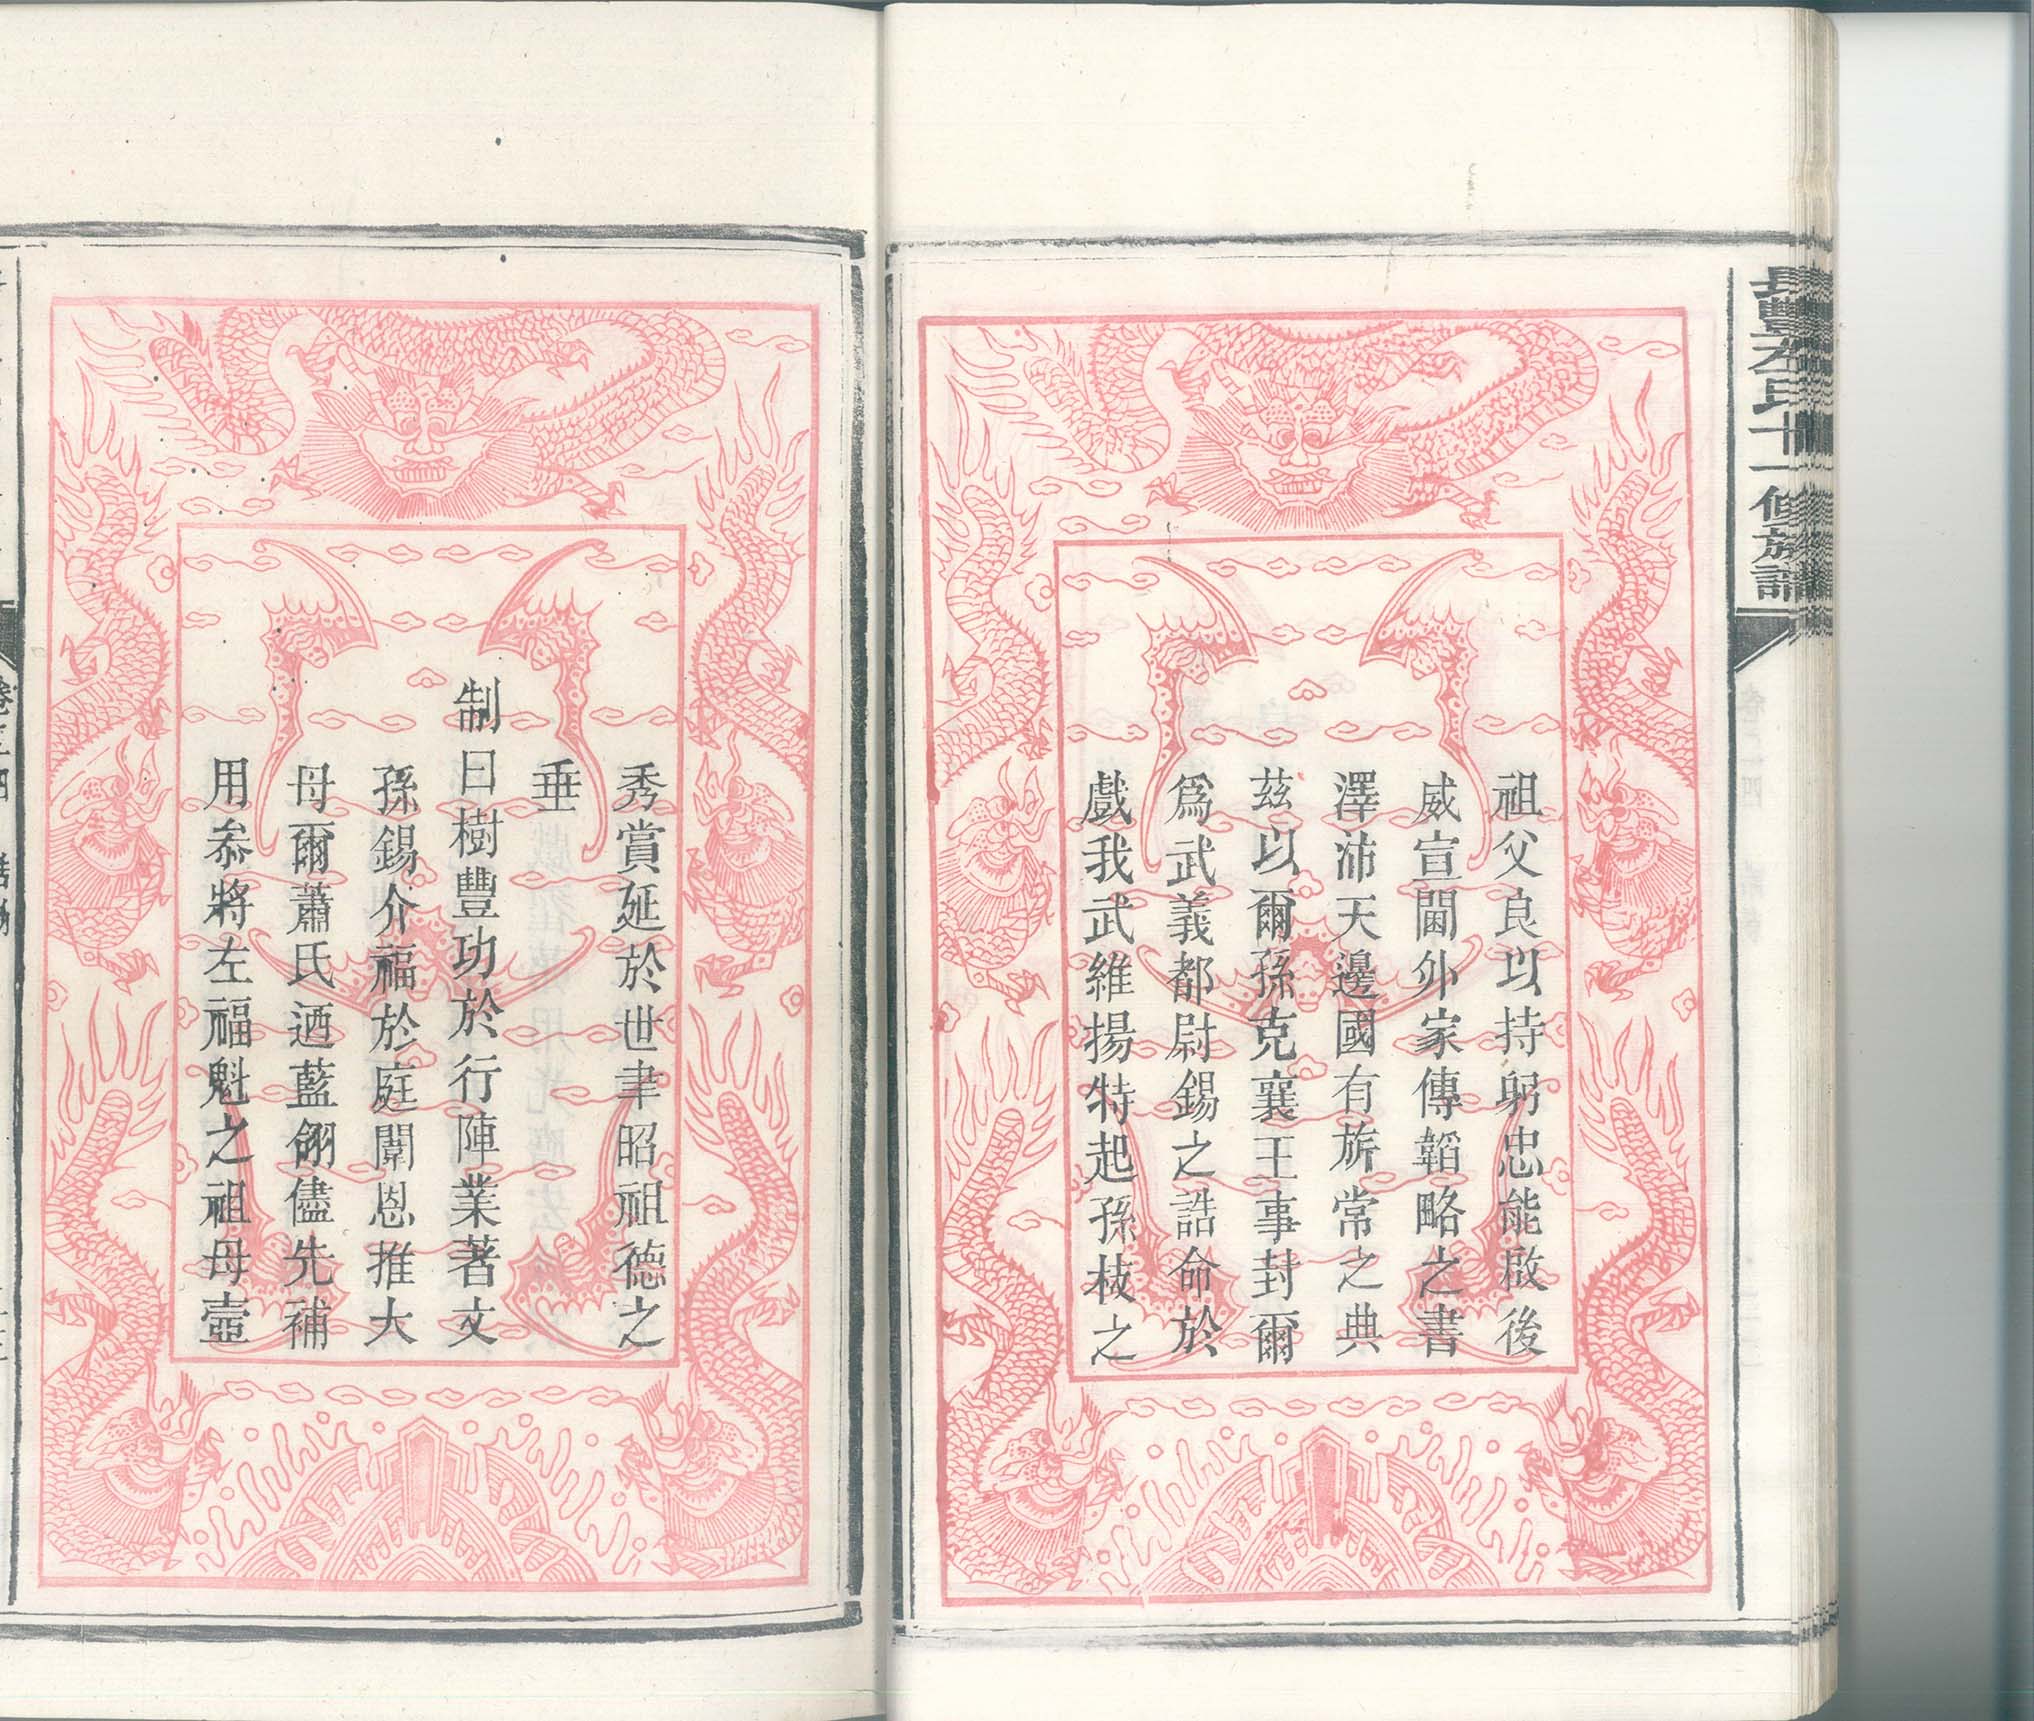 長豐左氏十一修族譜
祖父良以持躬忠能啟後
威宣閫外家傳韜略之書
澤沛天邊國有旂常之典
茲以爾孫克襄王事封爾
爲武義都尉錫之誥命於
戲我武維揚特起孫枝之
秀賞延於世聿昭祖德之
垂
制曰樹豐功於行陣業著文
孫錫介福於庭闈恩推大
母爾蕭氏迺藍翎儘先補
用叅將左福魁之祖母壼
卷之四 誥勅